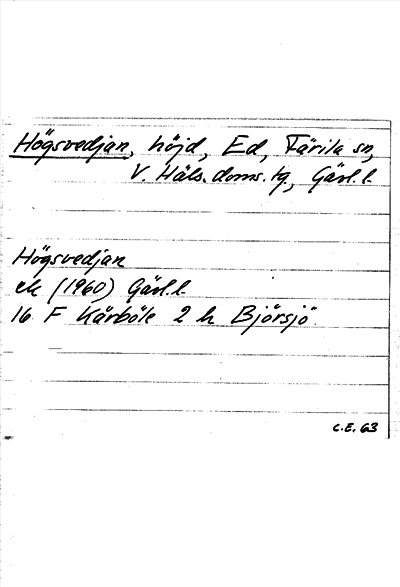 Högsvedjan, höjd, Ed, Färila sn,
V. Häls. doms. tg, Gävl. l.
Högsvedjan
ek (1960) Gävl. l.
16 F Kårböle 2 h Björsjö
C.E. 63